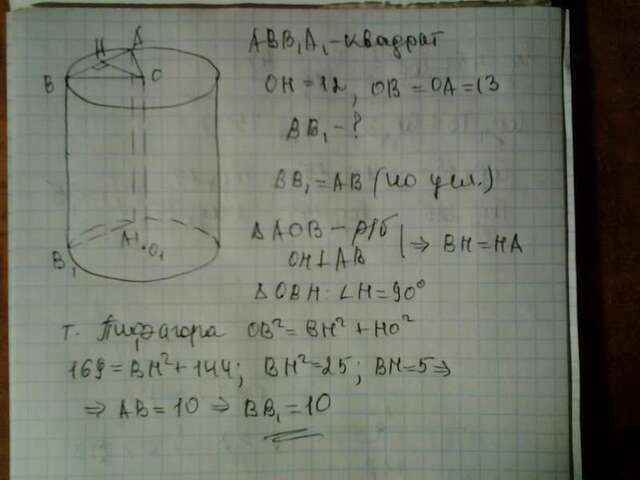 ABB₁A₁ - квадрат
OH = 12, OB = OA = 13
BB₁ - ?
BB₁ = AB (по усл.)
Δ AOB - р/б
OH ⊥ AB
⇒ BH = HA
Δ OBH: ∠H = 90°
т. Пифагора OB² = BH² + HO²
169 = BH² + 144; BH² = 25; BH = 5 ⇒
⇒ AB = 10 ⇒ BB₁ = 10
H A
B O
A₁ O₁
B₁